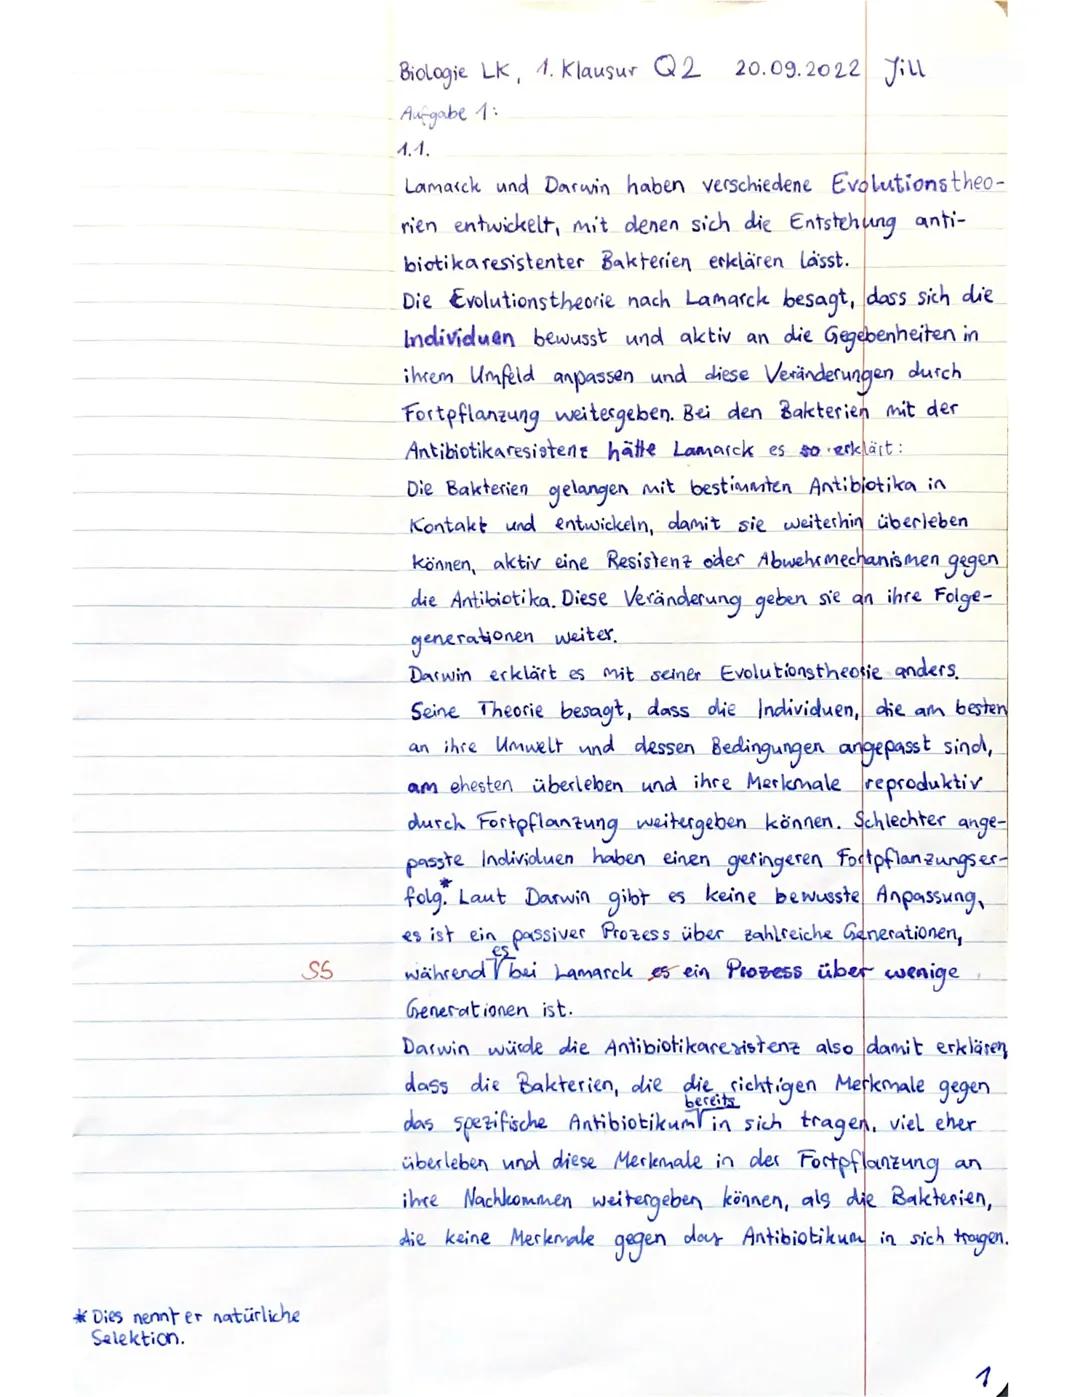 Biologie LK, 1. Klausur Q2 20.09.2022 Jill
Aufgabe 1:
1.1.
Lamarck und Darwin haben verschiedene Evolutionstheo-
rien entwickelt, mit denen sich die Entstehung anti-
biotikaresistenter Bakterien erklären lässt.
Die Evolutionstheorie nach Lamarck besagt, dass sich die
Individuen bewusst und aktiv an die Gegebenheiten in
ihrem Umfeld anpassen und diese Veränderungen durch
Fortpflanzung weitergeben. Bei den Bakterien mit der
Antibiotikaresistenz hätte Lamarck es so erklärt:
Die Bakterien gelangen mit bestimmten Antibiotika in
Kontakt und entwickeln, damit sie weiterhin überleben
können, aktiv eine Resistenz oder Abwehrmechanismen gegen
die Antibiotika. Diese Veränderung geben sie an ihre Folge-
generationen weiter.
Darwin erklärt es mit seiner Evolutionstheorie anders.
Seine Theorie besagt, dass die Individuen, die am besten
an ihre Umwelt und dessen Bedingungen angepasst sind,
am ehesten überleben und ihre Merkmale reproduktiv
durch Fortpflanzung weitergeben können. Schlechter ange-
passte Individuen haben einen geringeren Fortpflanzungser-
folg.* Laut Darwin gibt es keine bewusste Anpassung,
es ist ein passiver Prozess über zahlreiche Generationen,
SB während es bei Lamarck es ein Prozess über wenige
Generationen ist.
Darwin würde die Antibiotikaresistenz also damit erklären,
dass die Bakterien, die die richtigen Merkmale gegen
das spezifische Antibiotikum bereits in sich tragen, viel eher
überleben und diese Merkmale in der Fortpflanzung an
ihre Nachkommen weitergeben können, als die Bakterien,
die keine Merkmale gegen das Antibiotikum in sich tragen.
* Dies nennt er natürliche
Selektion.
1